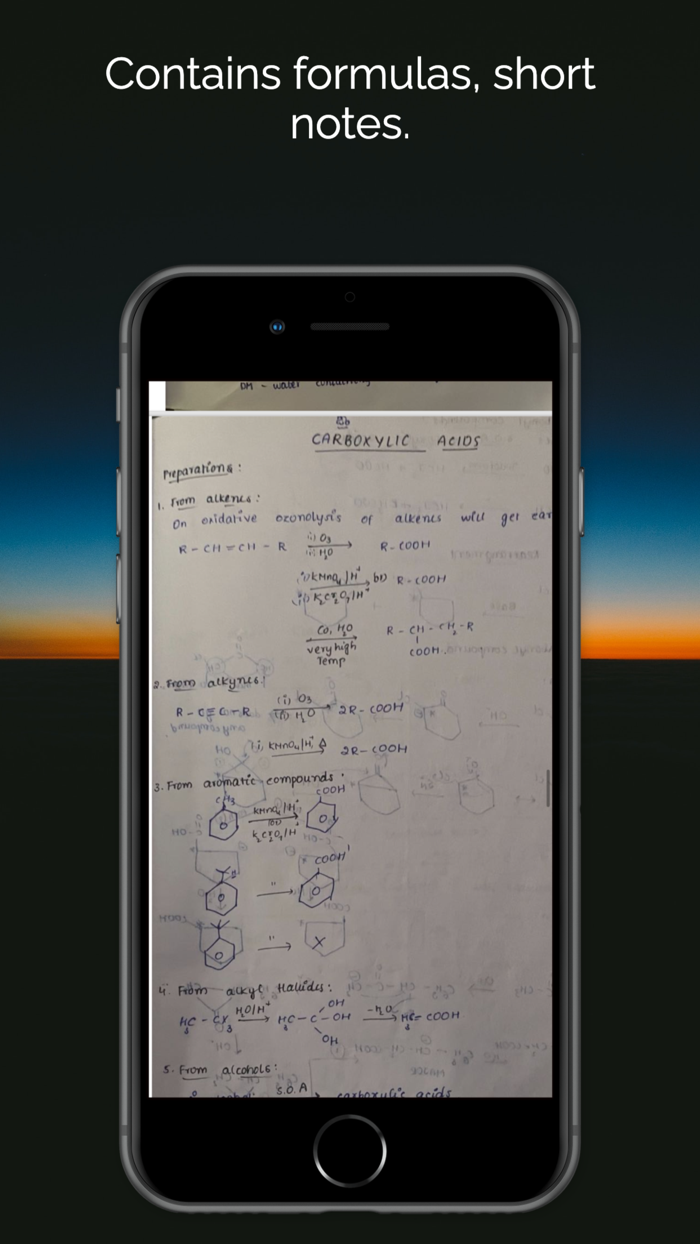 Contains formulas, short
notes.
DM - water containing
CARBOXYLIC ACIDS
Preparations :
1. From alkenes :
On oxidative ozonolysis of alkenes will get car
R - CH = CH - R (i) O3 (ii) H2O → R - COOH
(i) KMnO4 | H+ (ii) K2Cr2O7 | H+ → R - COOH
CO, H2O very high Temp R - CH - CH2 - R
COOH
2. From alkynes :
R - C ≡ C - R (i) O3 (ii) H2O → 2R - COOH
KMnO4 | H+ Δ → 2R - COOH
3. From aromatic compounds :
CH3 KMnO4 | H+ K2Cr2O7 | H+ → COOH
" → COOH
" → X
4. From alkyl Halides :
H3C - CX3 H2O | H+ → H3C - C - OH -H2O → H3C - COOH
OH
OH
5. From alcohols :
S.O.A → carboxylic acids